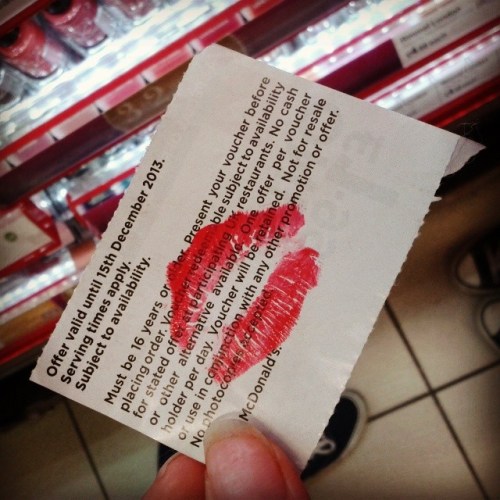 Offer valid until 15th December 2013.
Serving times apply.
Subject to availability.
Must be 16 years or Present your voucher before
placing order. subject to availability
for stated participating UK restaurants. No cash
or other alternative available. One offer per voucher
holder per day. Voucher will be retained. Not for resale
or use in conjunction with any other promotion or offer.
No photocopies accepted.
McDonald's.